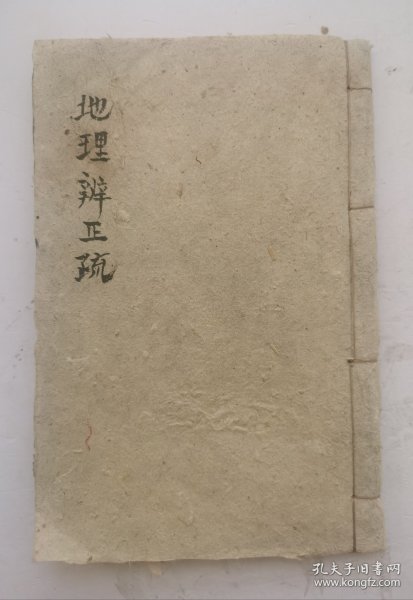 地理辨正疏
孔夫子旧书网
www.kongfz.com